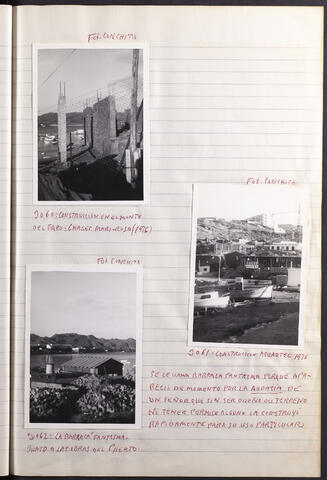 Fot. CONCHITA
3060 = CONSTRUCCION EN EL MONTE
DEL FARO = CHALET MARI-ROSA (1976)
Fot. CONCHITA
3061 = CONSTRUCCION 1976
Fot. CONCHITA
3062 = LA BARRACA "FANTASMA"
JUNTO A LAS OBRAS DEL PUERTO.
SE LE LLAMA BARRACA FANTASMA PORQUE APA-
RECIÓ DE MOMENTO POR LA AUDACIA DE
UN SEÑOR QUE SIN SER DUEÑO DEL TERRENO
NI TENER PERMISO ALGUNO LA CONSTRUYÓ
RAPIDAMENTE PARA SU USO PARTICULAR.